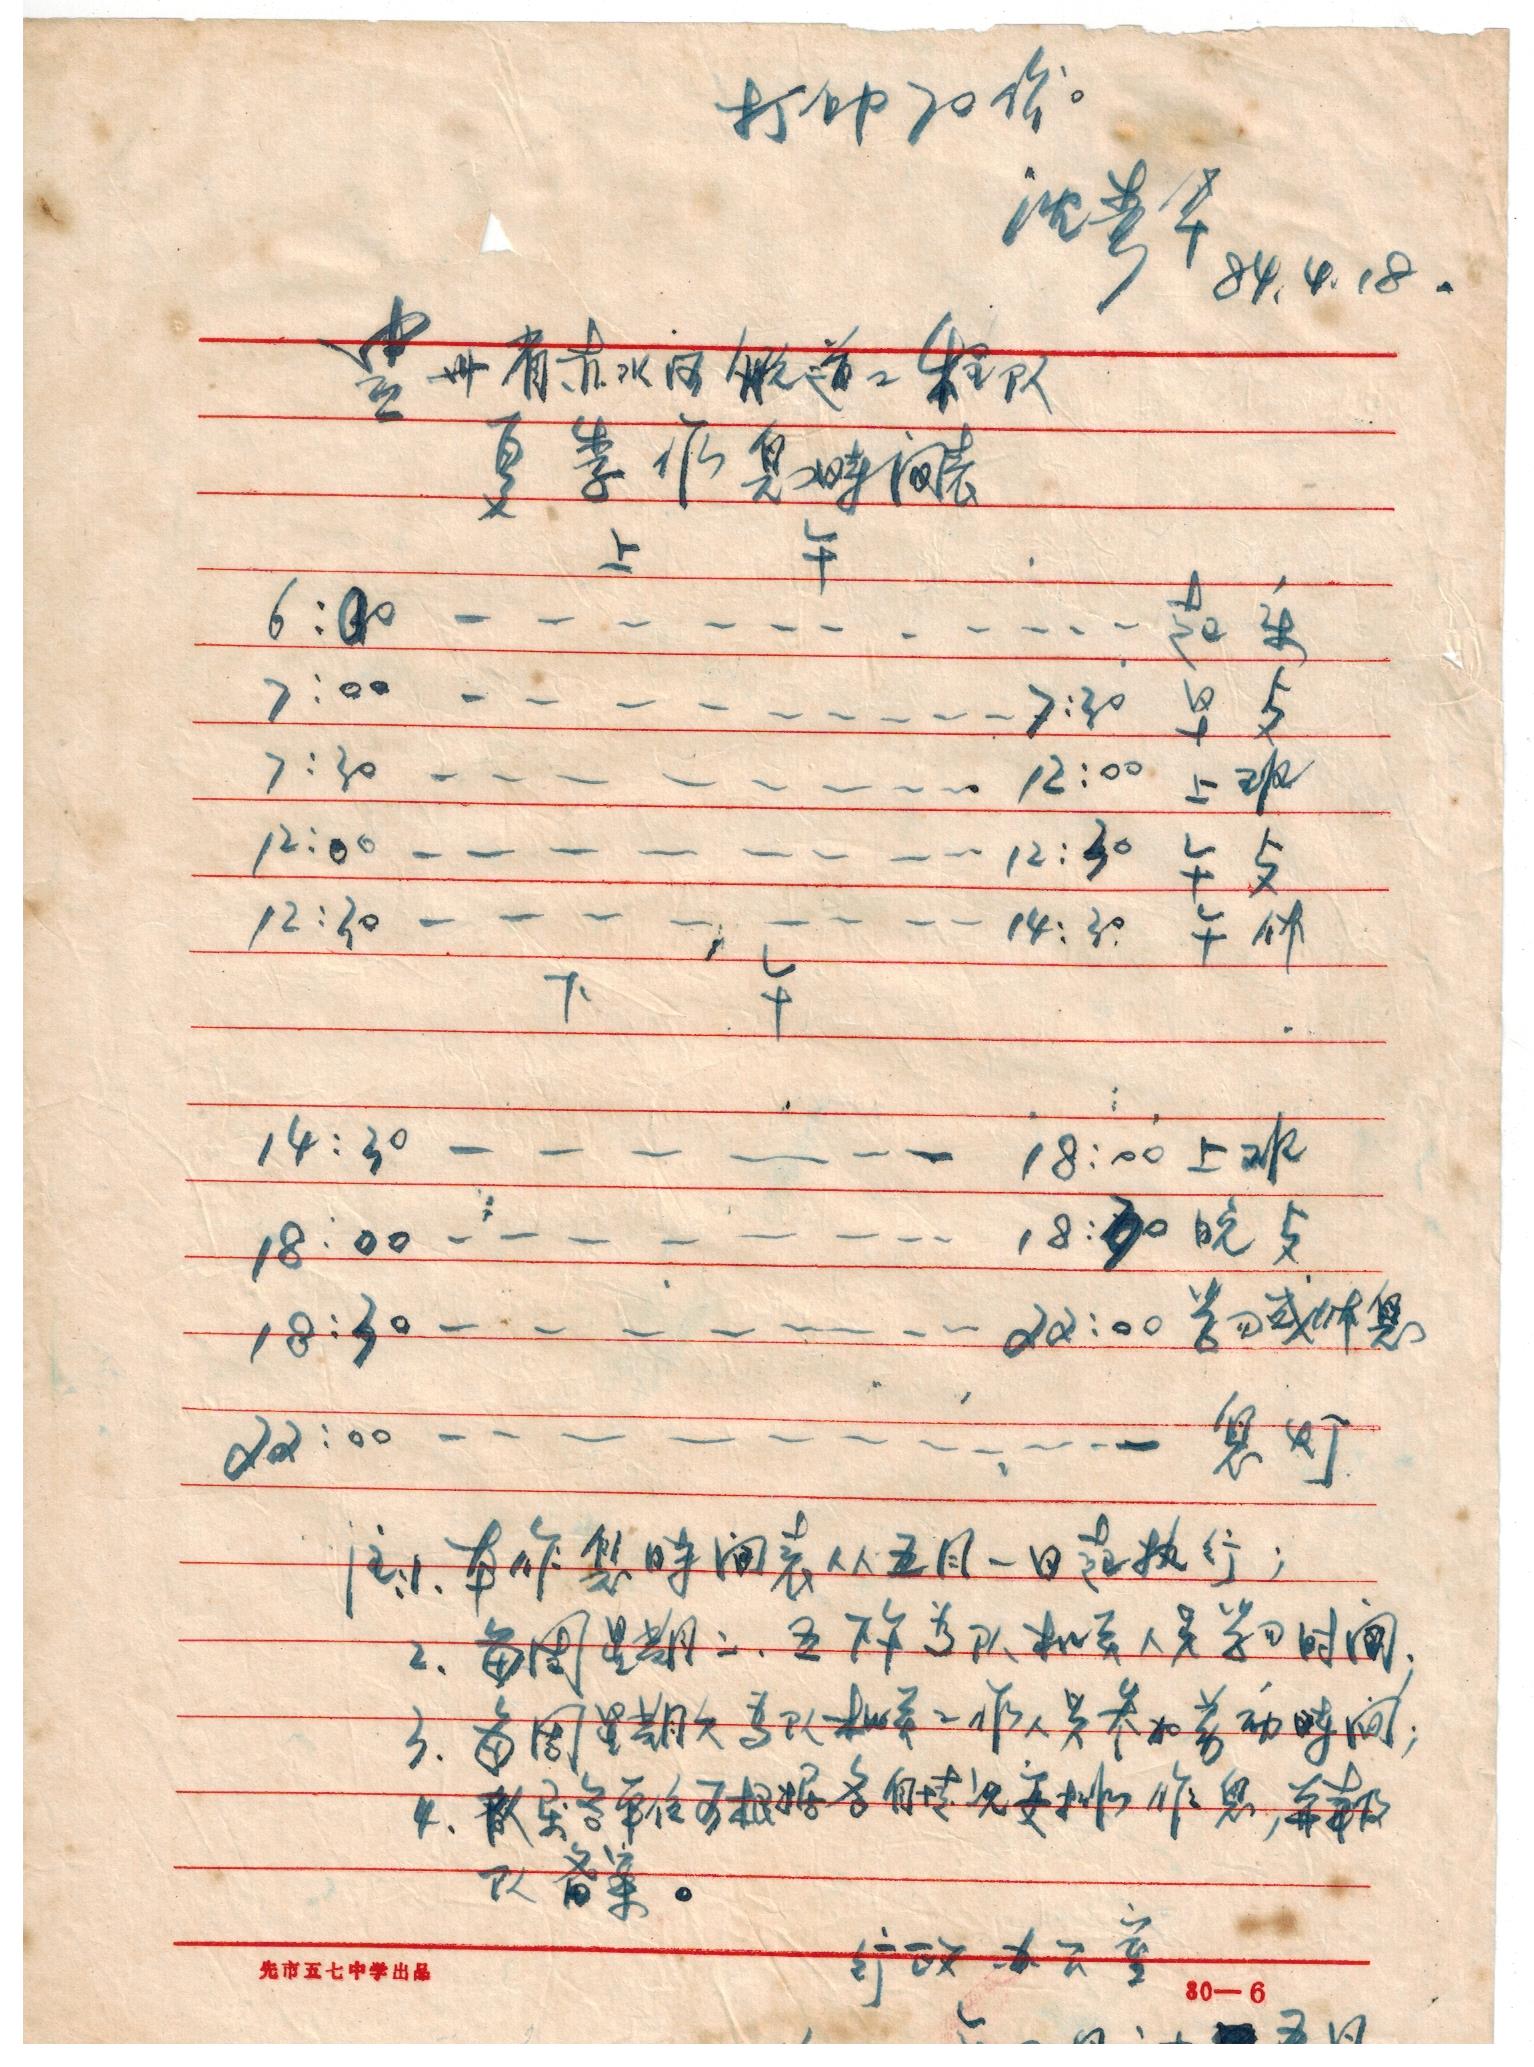 打印20份。
沈贵华
84.4.18.
贵州省赤水河航道工程队
夏季作息時间表
上 午
6:30 ---------- 起床
7:00 ---------- 7:30 早歺
7:30 ---------- 12:00 上班
12:00 ---------- 12:30 午歺
12:30 ---------- 14:30 午休
下 午
14:30 ---------- 18:00 上班
18:00 ---------- 18:30 晚歺
18:30 ---------- 22:00 学习或休息
22:00 ---------- 息灯
注:1. 本作息時间表从五月一日起执行;
2. 每周星期二、五下午为队机关人员学习时间;
3. 每周星期六为队机关工作人员参加劳动時间;
4. 各单位可根据各自情况安排作息,并报
队备案。
行政办公室
先市五七中学出品
80—6
五月